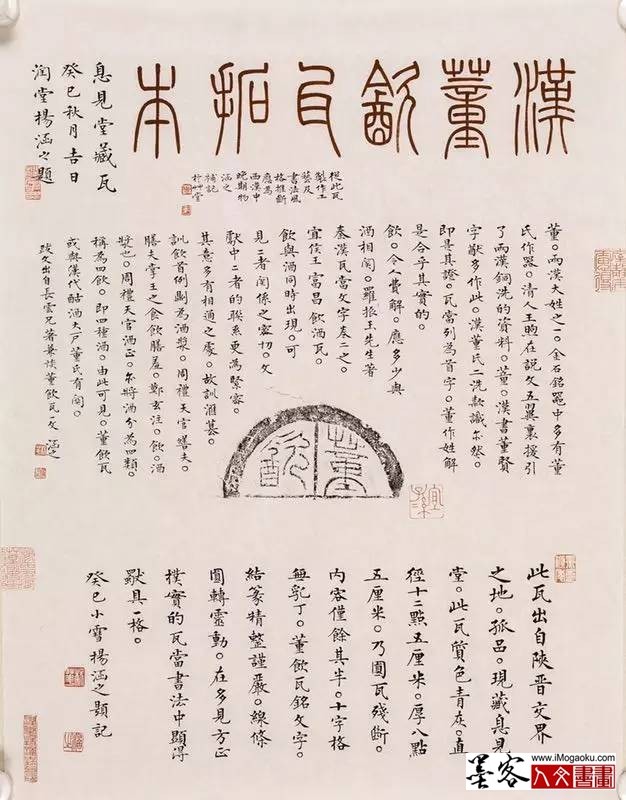 漢董飲瓦拓本
從此瓦
製作工
藝及
書法風
格推斷
應為
西漢中
晚期物
涵之
補記
於艸堂
息見堂藏瓦
癸巳秋月吉日
润堂楊涵之題
董。西漢大姓之一。金石銘器中多有董
氏作器。清人王煦在說文五翼裏援引
了兩漢銅洗的資料。董。漢書董賢
字猷多作此。漢董氏二洗款識亦然。
即是其證。瓦當列為首字。董作姓解
是合乎其實的。
飲。令人費解。應多少與
酒相関。羅振玉先生著
秦漢瓦當文字卷二之。
宜侯王富昌飲酒瓦。
飲與酒同時出現。可
見二者関係之密切。文
獻中二者的聯系更為緊密。
其意多有相通之處。故訓滙纂。
訓飲首例劃為酒漿。周禮天官膳夫。
膳夫掌王之食飲膳羞。鄭玄注。飲。酒
漿也。周禮天官酒正。亦將酒分為四類。
稱為四飲。即四種酒。由此可見。董飲瓦
或與漢代酤酒大戶董氏有関。
跋文出自長雲兄著兼談董飲瓦一文 涵之
董飲
宜子孫
此瓦出自陝晉交界
之地。孤品。現藏息見
堂。此瓦質色青灰。直
徑十二點五厘米。厚八點
五厘米。乃圓瓦殘斷。
內容僅餘其半。十字格
無乳丁。董飲瓦銘文字。
結篆精整謹嚴。線條
圓轉靈動。在多見方正
樸實的瓦當書法中顯得
猒具一格。
癸巳小雪楊涵之題記
墨客
www.iMogaoku.com
人文書畫